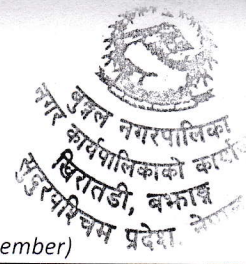 बुङ्गल नगरपालिका
नगर कार्यपालिकाको कार्या
खिरातडी, बझाङ्ग
सुदुरपश्चिम प्रदेश, नेपाल
ember)